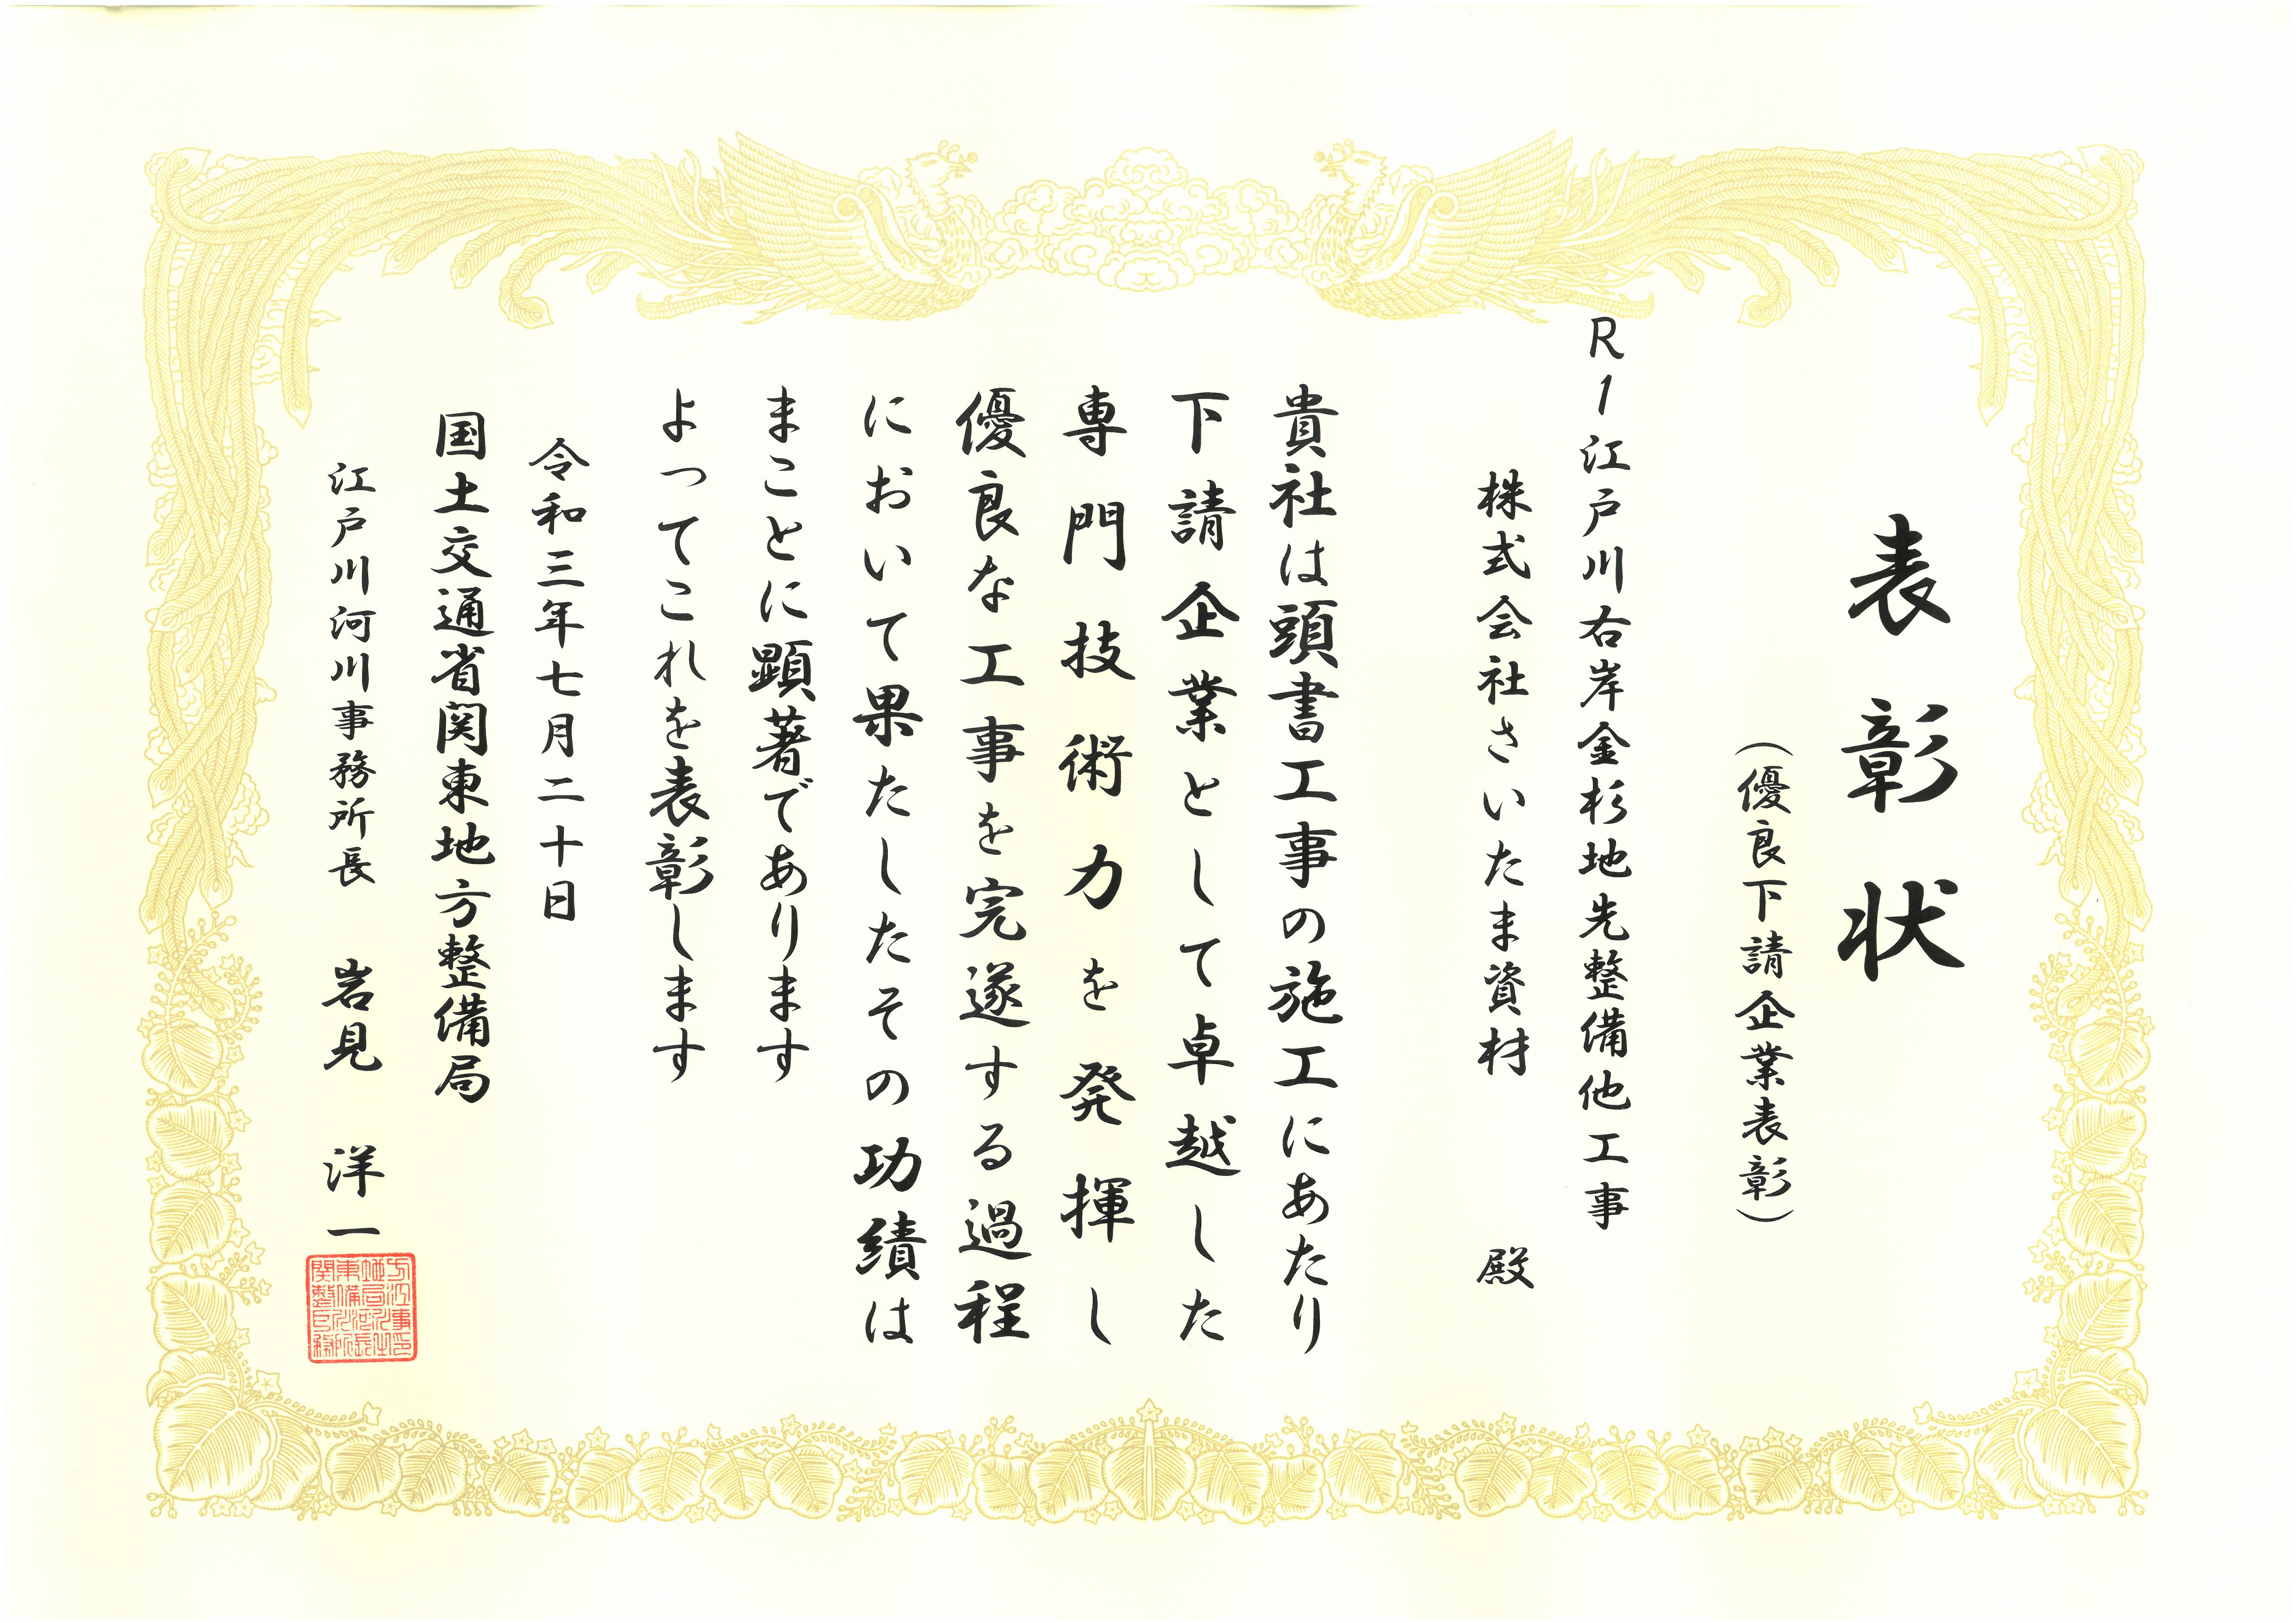 表彰状
（優良下請企業表彰）
R1江戸川右岸金杉地先整備他工事
株式会社さいたま資材 殿
貴社は頭書工事の施工にあたり
下請企業として卓越した
専門技術力を発揮し
優良な工事を完遂する過程
において果たしたその功績は
まことに顕著であります
よってこれを表彰します
令和三年七月二十日
国土交通省関東地方整備局
江戸川河川事務所長 岩見 洋一